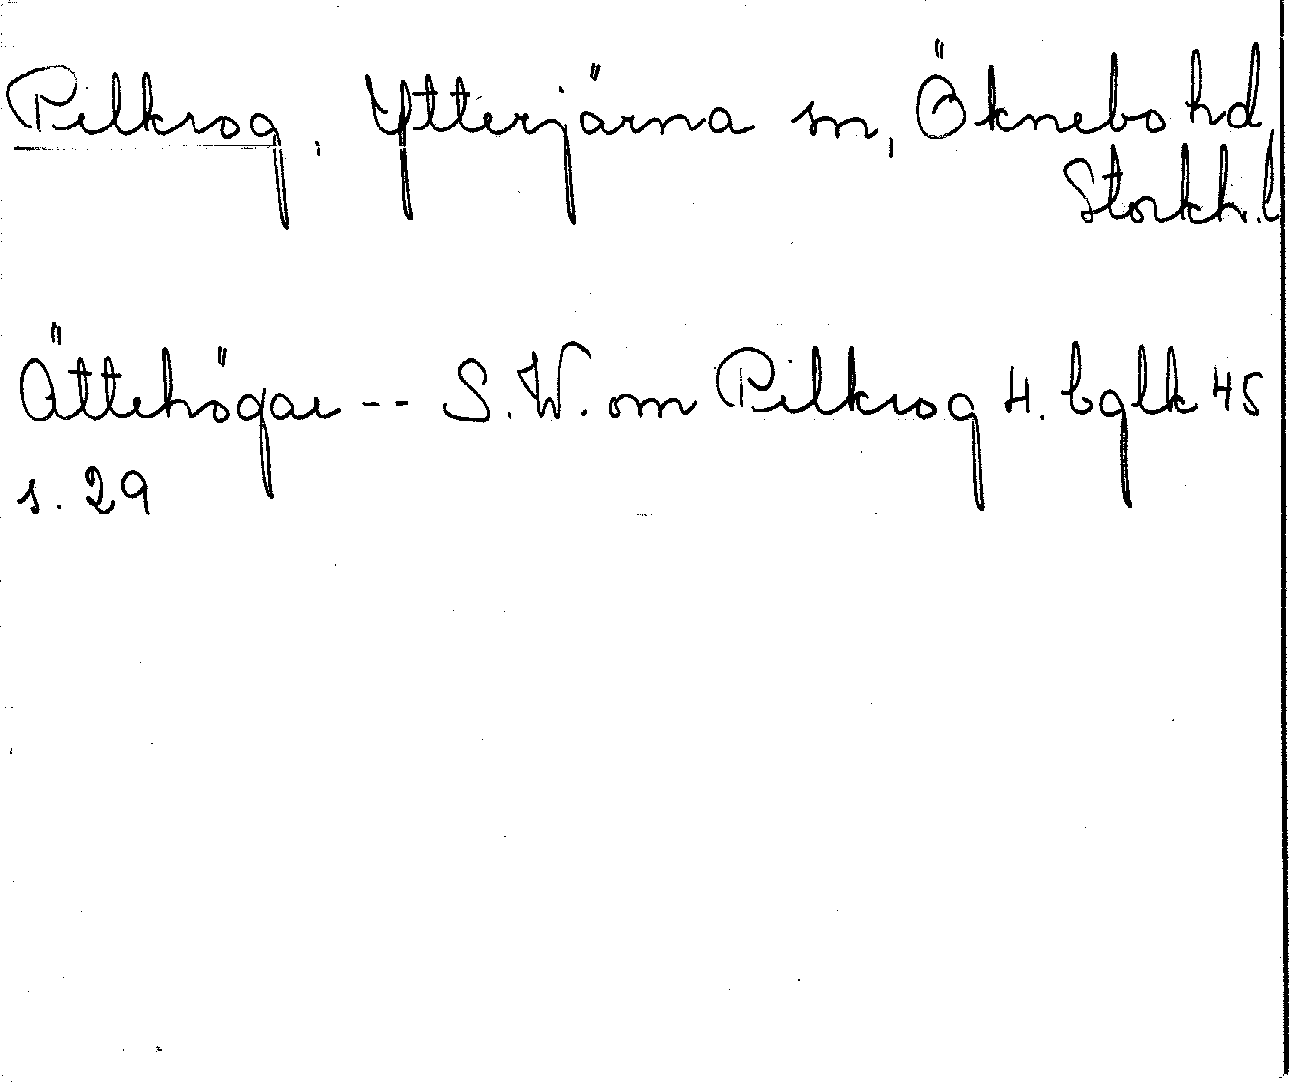 Pilkrog, Ytterjärna sn, Öknebo hd,
Stockh. l
Ättehögar -- S.W. om Pilkrog H. bglk 45
s. 29